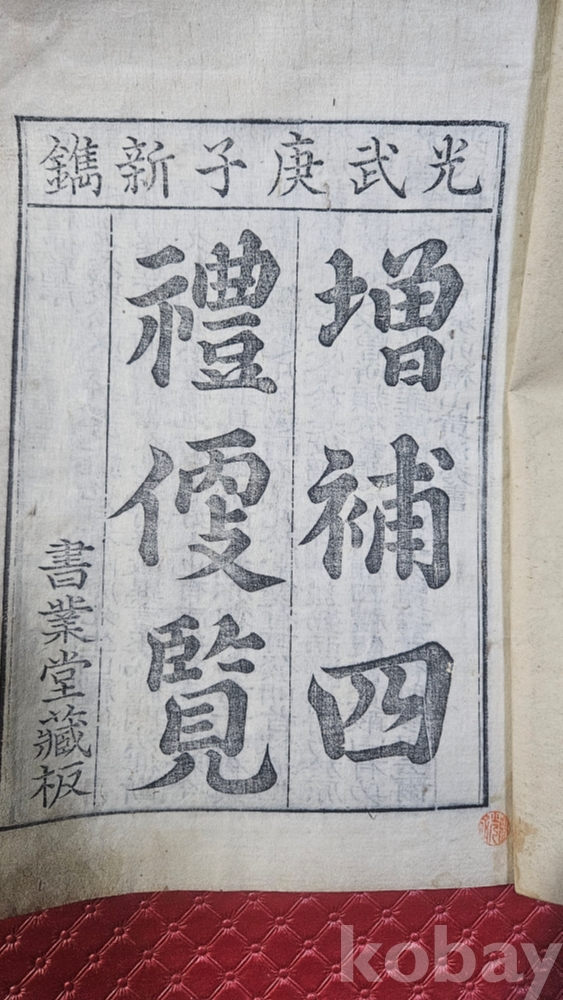 光武庚子新鐫
增補四
禮便覽
書業堂藏板
kobay